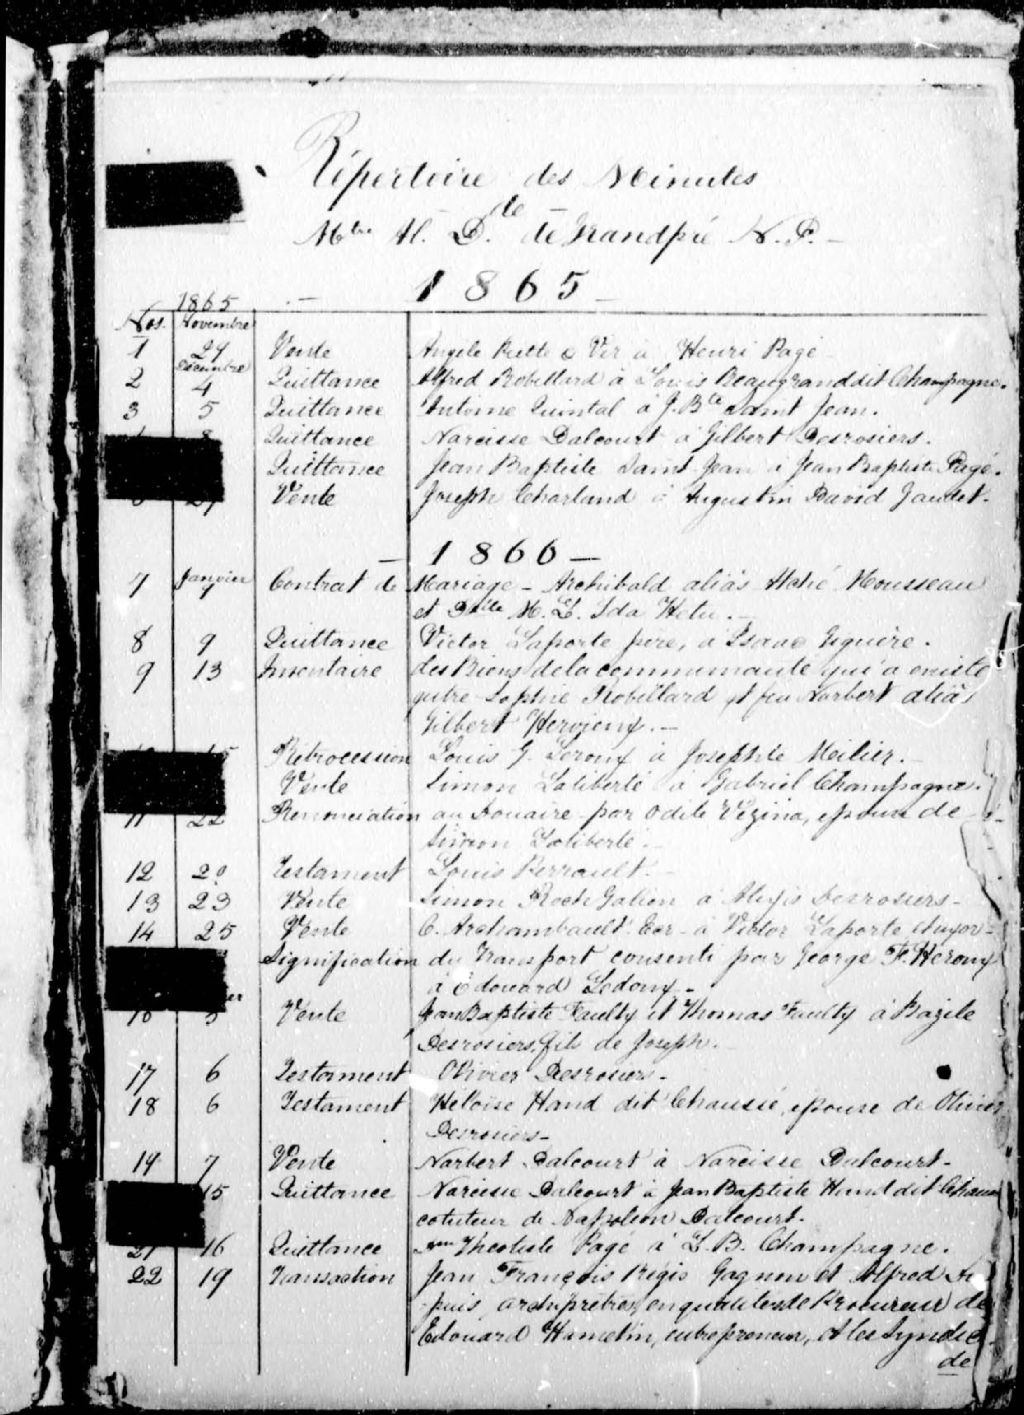 Répertoire des Minutes
Mtre M. D.te de Grandpré N. P.
1865
1865
Nos. Novembre
1 29 Vente Angele Piette & Vir à Henri Pagé
Décembre
2 4 Quittance Alfred Robillard à Louis Beaugrand dit Champagne.
3 5 Quittance Antoine Quintal à J. Bte Saint Jean.
8 Quittance Narcisse Dalcourt à Gilbert Desrosiers.
Quittance Jean Baptiste Saint Jean à Jean Baptiste Pagé.
Vente Joseph Charland à Augustin David Gaudet.
1866
Janvier
7 Contrat de Mariage - Archibald aliàs Mousseau
et Dlle M. L. Ida Hetu.
8 9 Quittance Victor Laporte père, à Isaac
9 13 Inventaire des Biens de la communauté qui a existé
entre Sophie Robillard et feu Norbert aliàs
Gilbert Hervieux.
15 Rétrocession Louis G. Leroux à Josephte Meilier.
Vente Simon Laliberté à Gabriel Champagne.
11 22 Renonciation au Douaire par Odile Vézina, épouse de
Simon Laliberté.
12 20 Testament Louis Perrault.
13 23 Vente Simon Roch Galien à Desrosiers
14 25 Vente C. Archambault Ecr à Victor Laporte
Signification du Transport consenti par George F. Heroux
à Edouard Ledoux
16 5 Vente Jean Baptiste Faulty et Thomas Faulty à Bazile
Desrosiers, fils de Joseph.
17 6 Testament Olivier Desrosiers
18 6 Testament Héloïse Hand dit Chaussé, épouse de Olivier
Desrosiers
19 7 Vente Norbert Dalcourt à Narcisse Dalcourt
15 Quittance Narcisse Dalcourt à Jean Baptiste Hand dit
cotuteur de Napoléon Dalcourt.
21 16 Quittance Théotiste Pagé à L. B. Champagne.
22 19 Transaction Jean François Régis Gagnon et Alfred
puis, archiprêtres, en qualité de Procureur de
Edouard Hamelin, entrepreneur, et les Syndics
de